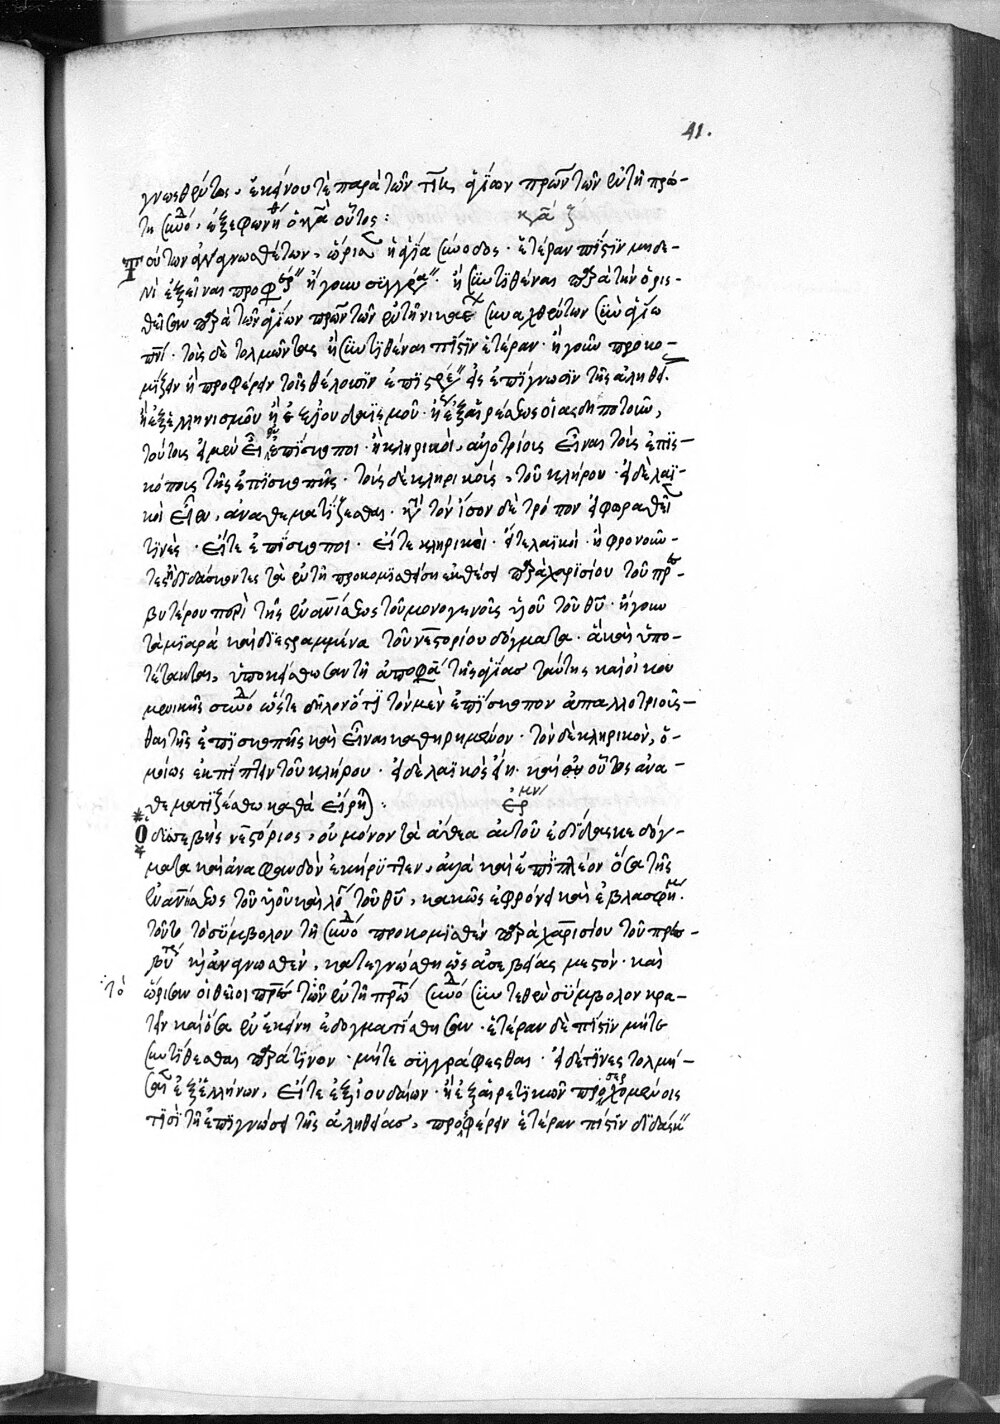 41.
γνωσθέντος, ἐκείνου τὲ παρὰ τῶν τιη ἁγίων πρων τῶν ἐν τῆ πρώ-
τη συνό. ἐξεφωνήθ ὁ κα οὗτος: κα ζ
Τούτων ἀναγνωσθέντων, ὥρισ ἡ ἁγία σύνοδος. ἑτέραν πίστϊν μηδε-
νὶ ἐξεῖναι προφέρ ἤγουν συγγρά. ἢ συντϊθέναι παρὰ τὴν ὁρισ-
θεῖσαν παρὰ τῶν ἁγίων πρων τῶν ἐν τῆ νικαέ συναχθέντων σὺν ἁγίω
πνι. τοὺς δὲ τολμῶντας ἢ συντϊθέναι πίστϊν ἑτέραν. ἤγουν προκο-
μίζειν ἢ προφέρειν τοῖς θέλουσϊν ἐπϊστρέ εἰς ἐπίγνωσϊν τῆς ἀληθεί.
ἢ ἐξ ἑλληνισμοῦ ἢ ἐξ ἰουδαϊσμοῦ. ἢ ἐξ αἱρέσεως οἱασδηποτοῦν,
τούτους εἰ μὲν εἶεν ἐπίσκοποι. ἢ κληρικοὶ, ἀλοτρίους εἶναι τοὺς ἐπϊσ-
κόπους τῆς ἐπϊσκοπῆς. τοὺς δὲ κληρικοὺς, τοῦ κλήρου. εἰ δὲ λαϊ-
κοὶ εἶεν, ἀναθεματίζεσθαι. κατὰ τὸν ἴσον δὲ τρόπον εἰ φωραθεῖ
τϊνὲς. εἴτε ἐπίσκοποι. εἴτε κληρικοὶ. εἴτε λαϊκοὶ. ἢ φρονοῦν-
τες ἢ διδάσκοντες τὰ ἐν τῆ προκομϊσθείση ἐκθέσει παρὰ χαρισίου τοῦ πρεσ-
βυτέρου περὶ τῆς ἐνανίσεως τοῦ μονογενοῦς υἱοῦ τοῦ θυ. ἤγουν
τὰ μϊαρὰ καὶ διεστραμμένα τοῦ νεστορίου δόγματα. ἃ καὶ ὑπο-
τέτακται, ὑποκείσθωσαν τῆ ἀποφά τῆς ἁγίας ταύτης καὶ οἰκου
μενικῆς συνό ὥστε δηλονότϊ τὸν μὲν ἐπϊσκοπον ἀπαλλοτριοῦσ-
θαι τῆς ἐπϊσκοπῆς καὶ εἶναι καθηρημένον. τὸν δὲ κληρικὸν, ὁ-
μοίως ἐκπίπτειν τοῦ κλήρου. εἰ δὲ λαϊκός εἴη. καὶ οὗτος ἀνα-
θεματϊζέσθω καθὰ εἴρη: ἑρμν
Ὁ δυσσεβὴς νεστόριος, οὐ μόνον τὰ ἄθεα αὐτοῦ ἐδίδασκε δόγ-
ματα καὶ ἀναφανδὸν ἐκήρϋττεν, ἀλὰ καὶ ἐπϊπλέον ὅσα τῆς
ἐνανίσεως τοῦ υἱοῦ καὶ λόγ τοῦ θυ, κακῶς ἐφρόνει καὶ ἐβλασφήμ.
τοῦτο τὸ σύμβολον τῆ συνό προκομϊσθὲν παρὰ χαρισίου τοῦ πρεσ-
βυτε κὴ ἀναγνωσθὲν, κατεγνώσθη ὡς ἀσεβείας μεστόν. καὶ
τὸ ὥρισαν οἱ θεῖοι πρες τῶν ἐν τῆ πρώ συνό συντεθὲν σύμβολον κρα-
τεῖν καὶ ὅσα ἐν ἐκείνη ἐδογματίσθησαν. ἑτέραν δὲ πίστϊν μήτε
συντϊθεσθαι παρά τϊνον. μήτε συγγράφεσθαι. εἰ δέ τϊνες τολμή-
σει ἐξ ἑλλήνων, εἴτε ἐξ ἰουδαίων. ἢ ἐξ αἱρετϊκῶν προσερχομένοις
τϊσὶ τῆ ἐπϊγνώσει τῆς ἀληθείας, προφέρειν ἑτέραν πίστϊν διδάσκ